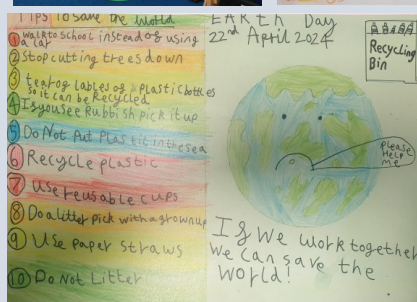 TIPS To save the World
1 walk to school instead of using
a car
2 Stop cutting trees down
3 tear of lables of plastic bottles
so it can be Recycled
4 If you see Rubbish pick it up
5 Do Not Put Plastic in the sea
6 Recycle plastic
7 Use reusable cups
8 Do a litter pick with a grown up
9 Use paper straws
10 Do Not Litter
EARTH Day
22nd April 2024
Recycling
Bin
Please
Help
me
If We work together
We can save the
World!